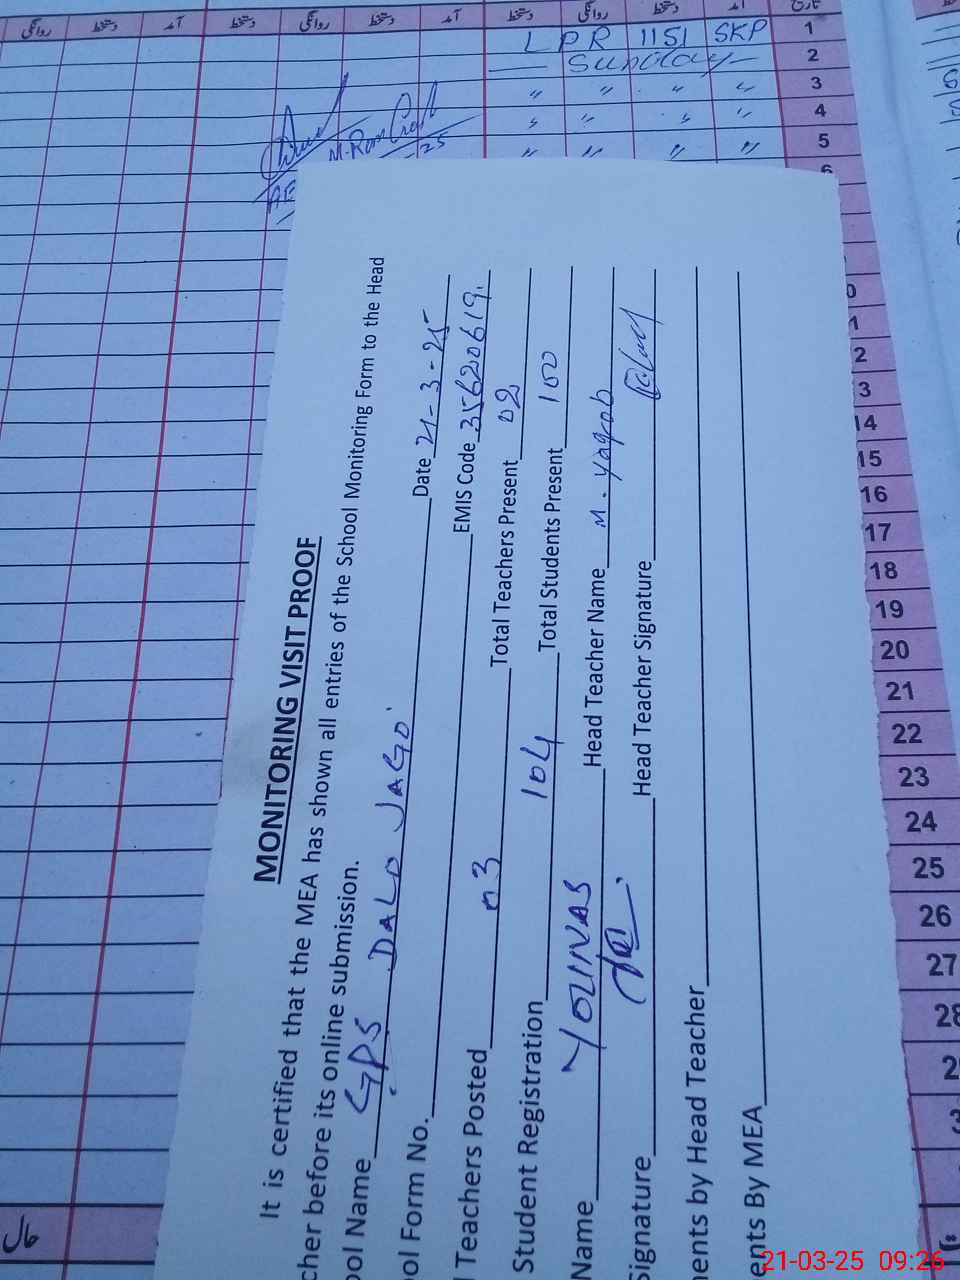 روانگی دستخط آمد روانگی دستخط آمد دستخط روانگی دستخط آمد تاریخ
LPR 1151 SKP 1
Sunday 2
〃 〃 〃 〃 3
〃 〃 〃 〃 4
〃 〃 〃 〃 5
6
MONITORING VISIT PROOF
It is certified that the MEA has shown all entries of the School Monitoring Form to the Head
cher before its online submission.
ool Name GPS DALO JAGO Date 21-3-25
ol Form No. EMIS Code 35620619
l Teachers Posted 03 Total Teachers Present 02
Student Registration 104 Total Students Present 100
Name YOUNAS Head Teacher Name M. Yaqoob
Signature Head Teacher Signature
ents by Head Teacher
ents By MEA
0
1
2
3
14
15
16
17
18
19
20
21
22
23
24
25
26
27
28
2
3
21-03-25 09:26